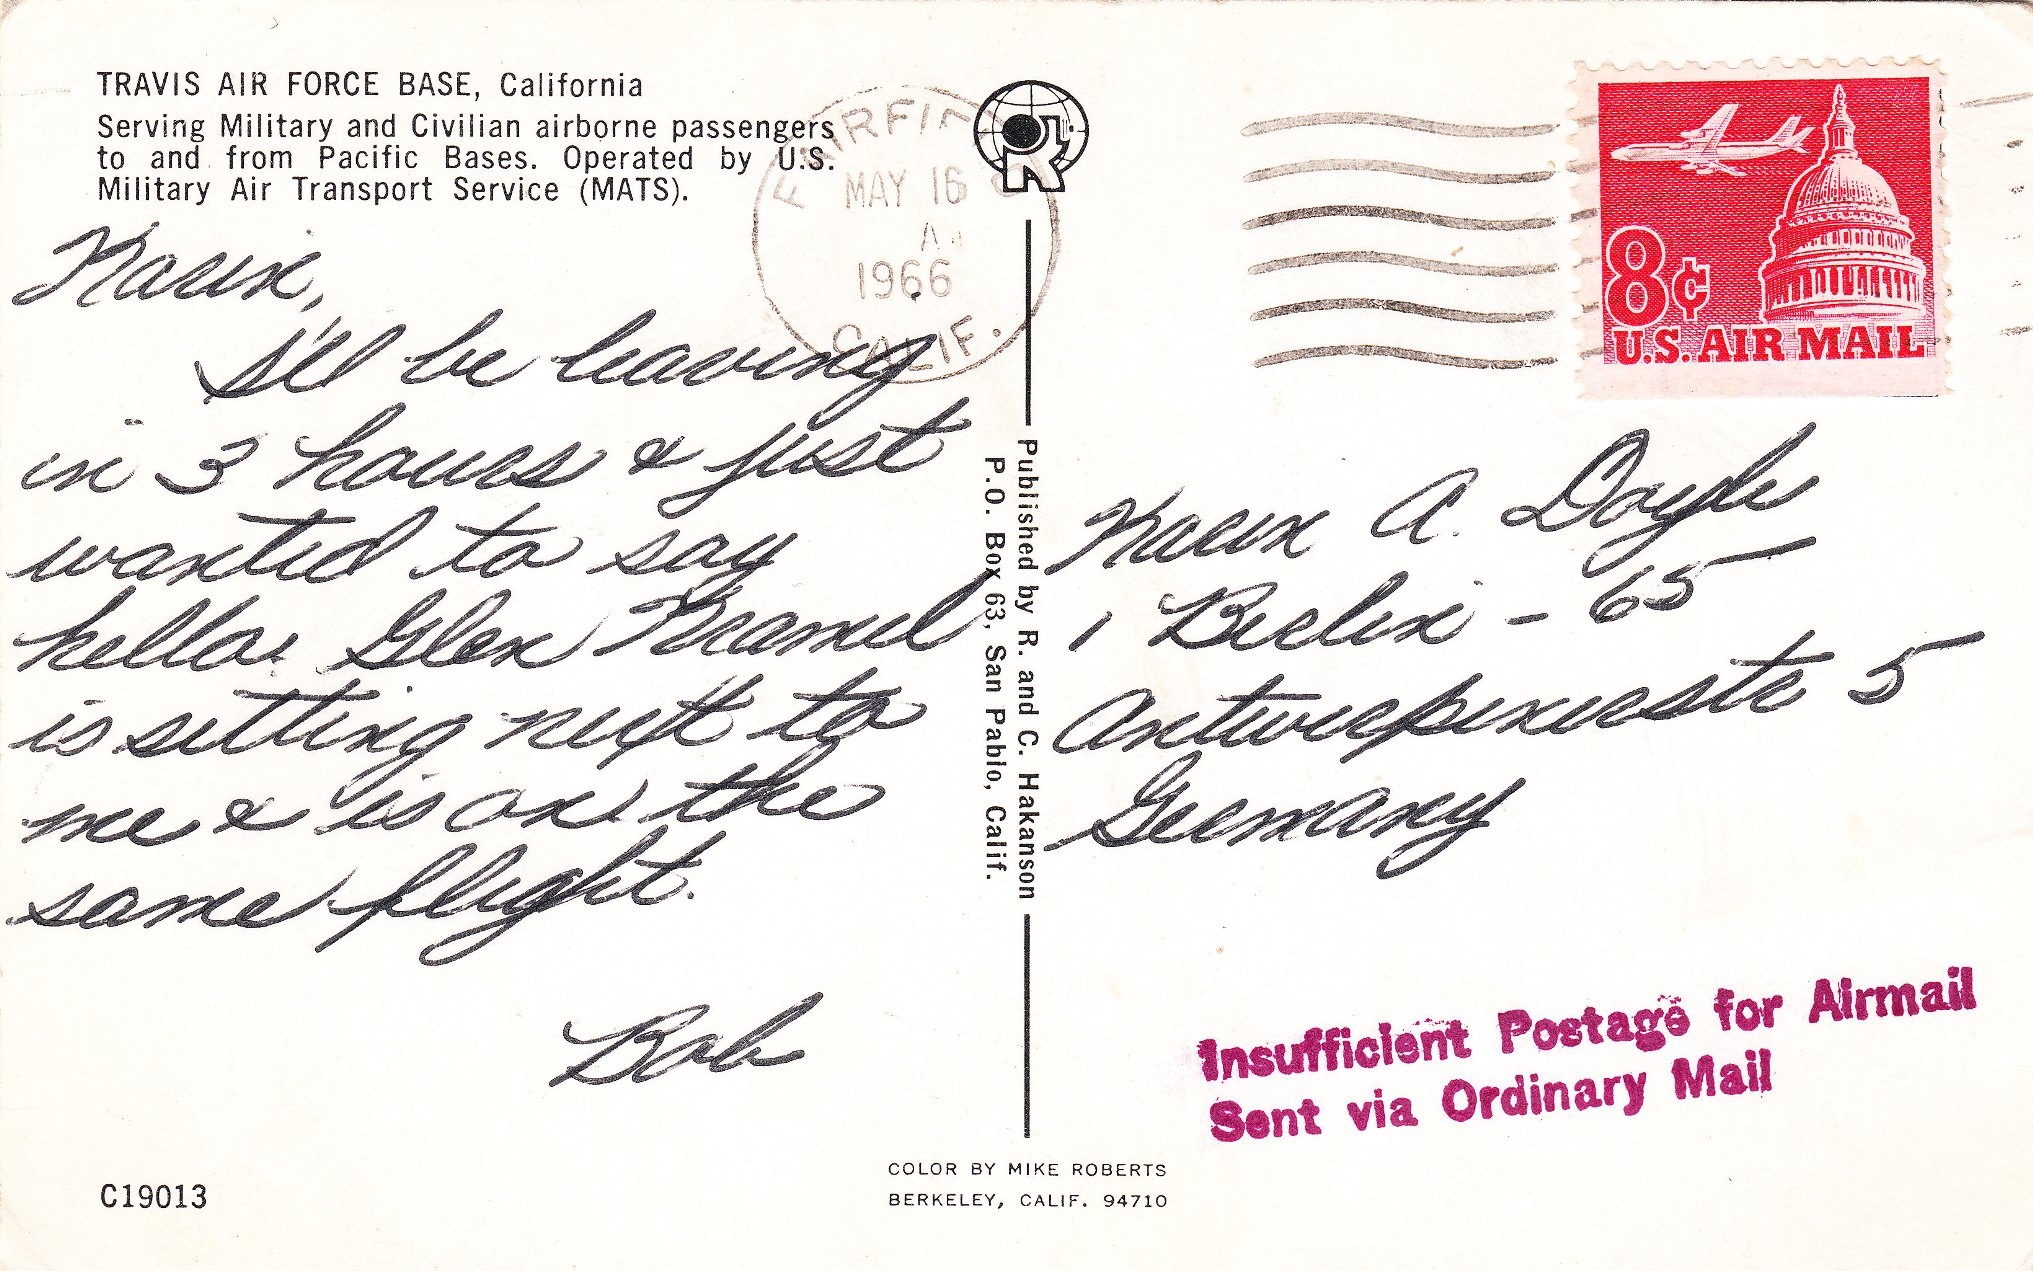 TRAVIS AIR FORCE BASE, California
Serving Military and Civilian airborne passengers
to and from Pacific Bases. Operated by U.S.
Military Air Transport Service (MATS).
MAY 16
1966
CALIF.
8¢
U.S. AIR MAIL
Karen,
I'll be leaving
in 3 hours & just
wanted to say
hello. Glen
is sitting next to
me & is on the
same flight.
Bob
Published by R. and C. Hakanson
P.O. Box 63, San Pablo, Calif.
Karen A. Doyle
1 Berlin - 65
Antwerpenerstr 5
Germany
Insufficient Postage for Airmail
Sent via Ordinary Mail
C19013
COLOR BY MIKE ROBERTS
BERKELEY, CALIF. 94710